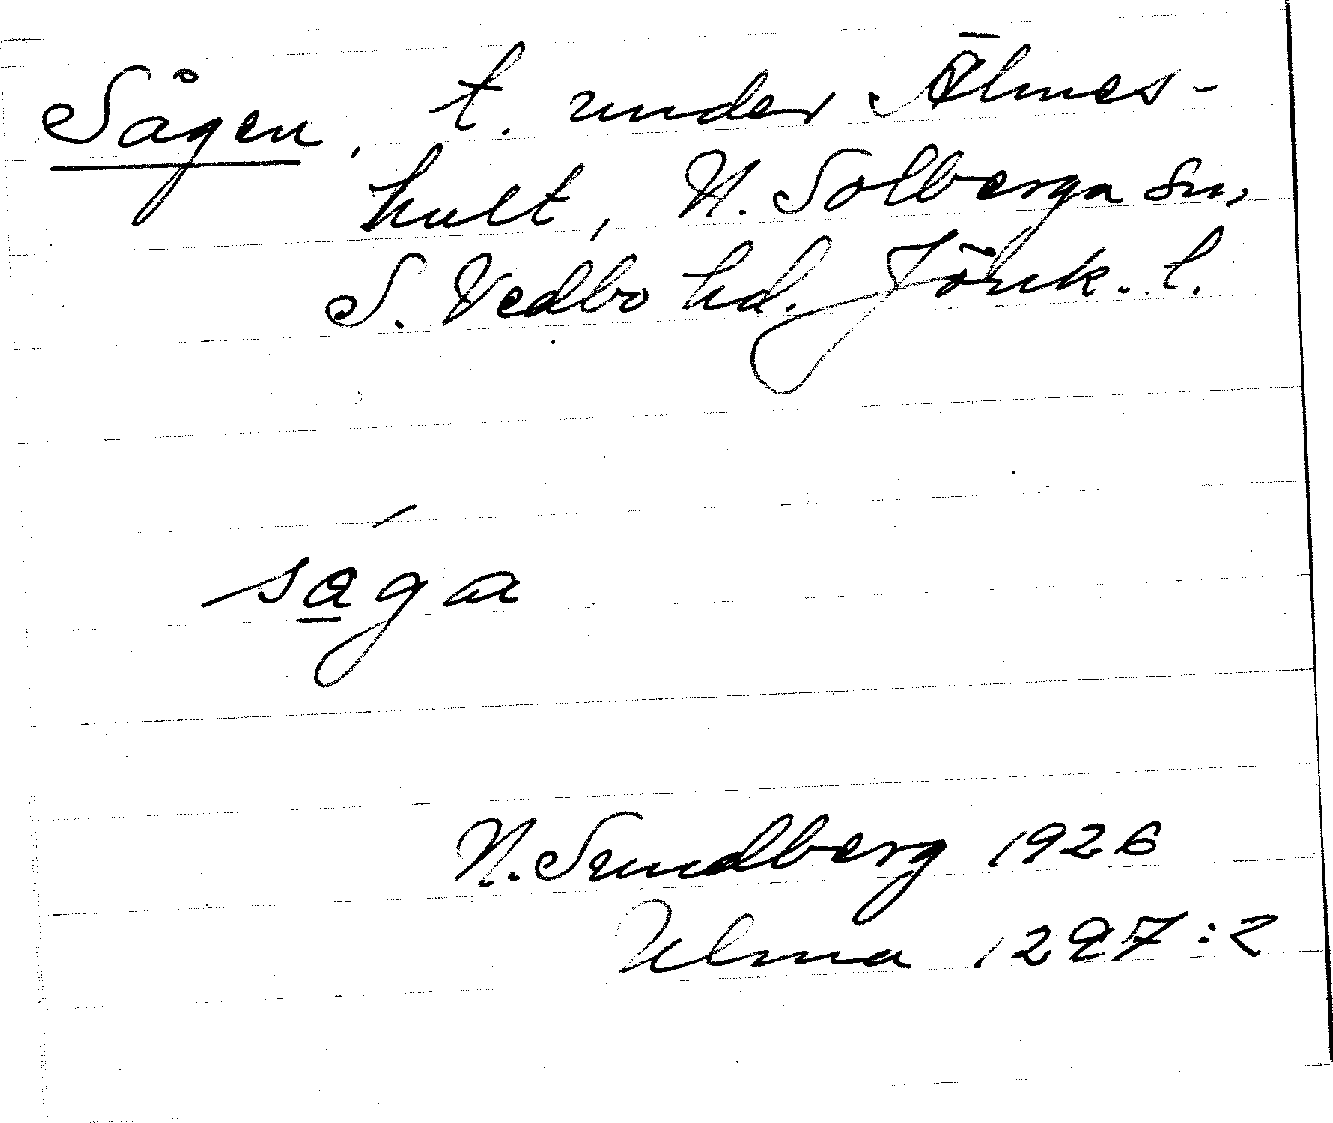 Sågen, t. under Älmes-
hult, N. Solberga sn,
S. Vedbo hd. Jönk. l.
såga
N. Sundberg 1926
Ulma 1297:2